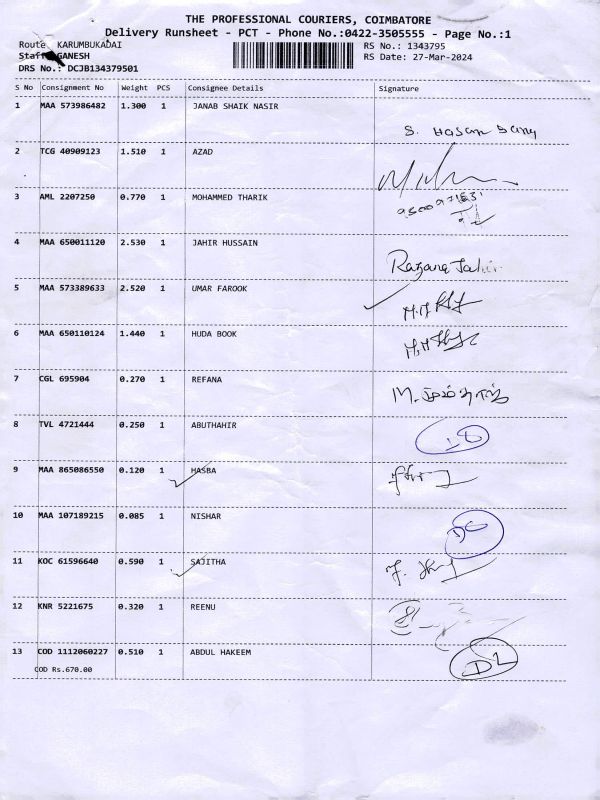 THE PROFESSIONAL COURIERS, COIMBATORE
Delivery Runsheet - PCT - Phone No.:0422-3505555 - Page No.:1
Route KARUMBUKADAI
RS No.: 1343795
Staff GANESH
RS Date: 27-Mar-2024
DRS No.: DCJB134379501
S No Consignment No Weight PCS Consignee Details Signature
1 MAA 573986482 1.300 1 JANAB SHAIK NASIR
S. Hasan Banu
2 TCG 40909123 1.510 1 AZAD
3 AML 2207250 0.770 1 MOHAMMED THARIK
4 MAA 650011120 2.530 1 JAHIR HUSSAIN
Razana Jahir
5 MAA 573389633 2.520 1 UMAR FAROOK
6 MAA 650110124 1.440 1 HUDA BOOK
7 CGL 695904 0.270 1 REFANA
8 TVL 4721444 0.250 1 ABUTHAHIR
9 MAA 865086550 0.120 1 HASBA
10 MAA 107189215 0.085 1 NISHAR
11 KOC 61596640 0.590 1 SAJITHA
12 KNR 5221675 0.320 1 REENU
13 COD 1112060227 0.510 1 ABDUL HAKEEM
COD Rs.670.00
DL